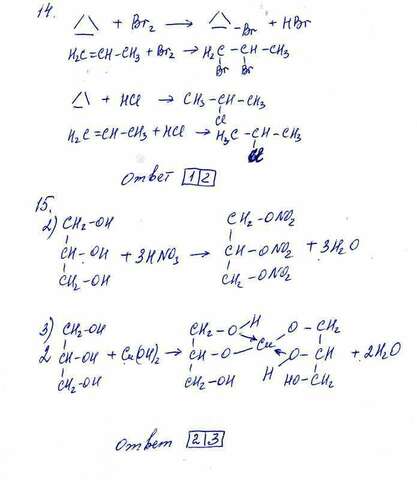 14.
△ + Br₂ → △-Br + HBr
H₂C=CH-CH₃ + Br₂ → H₂C-CH-CH₃
Br Br
△ + HCl → CH₃-CH-CH₃
Cl
H₂C=CH-CH₃ + HCl → H₃C-CH-CH₃
Cl
Ответ 12
15.
2) CH₂-OH CH₂-ONO₂
CH-OH + 3HNO₃ → CH-ONO₂ + 3H₂O
CH₂-OH CH₂-ONO₂
3) CH₂-OH CH₂-O H O-CH₂
2 CH-OH + Cu(OH)₂ → CH-O Cu O-CH + 2H₂O
CH₂-OH CH₂-OH H HO-CH₂
Ответ 23